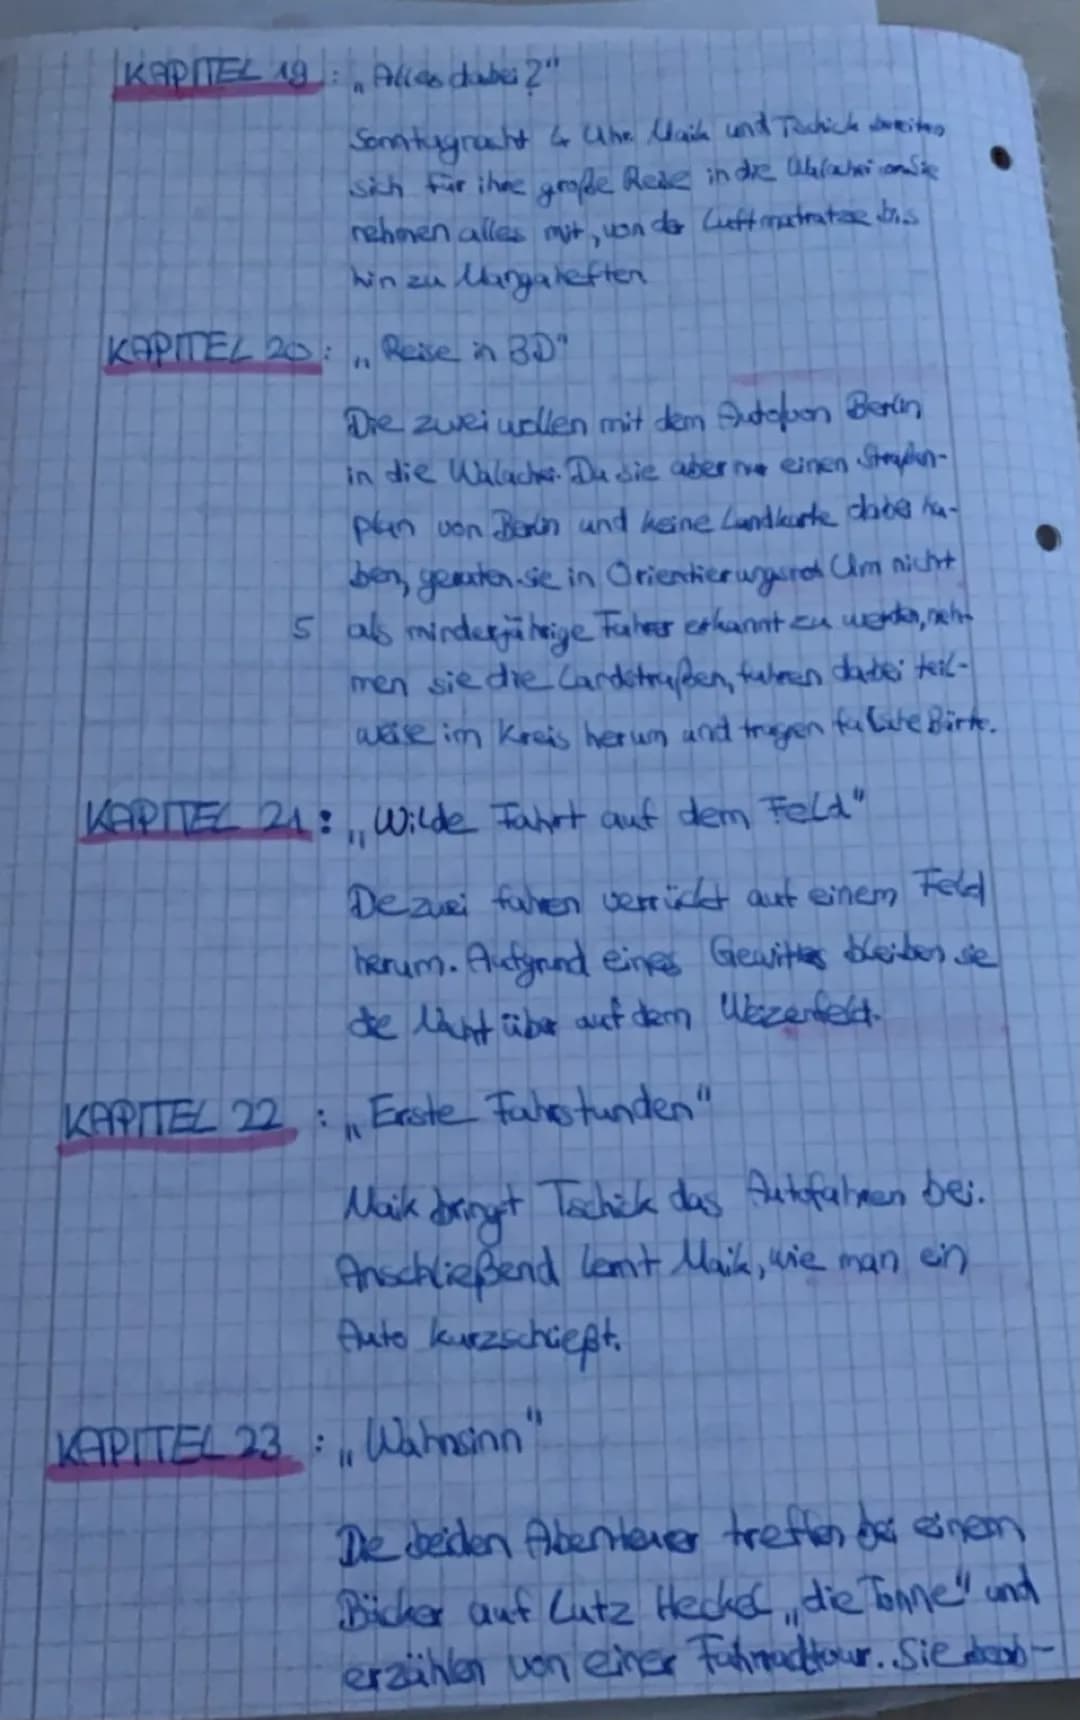 KAPITEL 19: „Alles dabei?"
Sonntagnacht 4 Uhr. Maik und Tschick bereiten
sich für ihre große Reise in die Walachei Sie
nehmen alles mit, von der Luftmatratze bis
hin zu Mangaheften
KAPITEL 20: „Reise in 3D"
Die zwei wollen mit dem Auto von Berlin
in die Walachei. Da sie aber nur einen Straßen-
plan von Berlin und keine Landkarte dabei ha-
ben, geraten sie in Um nicht
5 als minderjährige Fahrer erkannt zu werden, neh-
men sie die Landstraßen, fahren dabei teil-
weise im Kreis herum und tragen falsche Bärte.
KAPITEL 21: „Wilde Fahrt auf dem Feld"
Die zwei fahren verrückt auf einem Feld
herum. Aufgrund eines Gewitters bleiben sie
die Nacht über auf dem Weizenfeld.
KAPITEL 22: „Erste Fahrstunden"
Maik bringt Tschick das Autofahren bei.
Anschließend lernt Maik, wie man ein
Auto kurzschießt.
KAPITEL 23: „Wahnsinn"
Die beiden Abenteuer treffen bei einem
Bäcker auf Lutz Heckel „die Tonne" und
erzählen von einer Fahrradtour. Sie